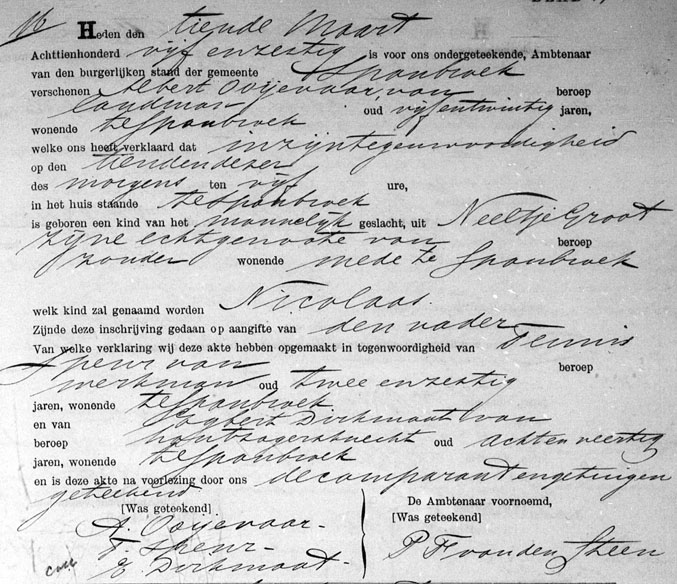 16 Heden den tiende Maart
Achttienhonderd vijf en zestig is voor ons ondergeteekende, Ambtenaar
van den burgerlijken stand der gemeente Spanbroek
verschenen Albert Ooijevaar, van beroep
landman oud vijf en twintig jaren,
wonende te Spanbroek
welke ons heeft verklaard dat in zijn tegenwoordigheid
op den tienden dezer
des morgens ten vijf ure,
in het huis staande te Spanbroek
is geboren een kind van het mannelijk geslacht, uit Neeltje Groot
zijne echtgenoote van beroep
zonder wonende mede te Spanbroek
welk kind zal genaamd worden Nicolaas.
Zijnde deze inschrijving gedaan op aangifte van den vader
Van welke verklaring wij deze akte hebben opgemaakt in tegenwoordigheid van Teunis
Speur van beroep
werkman oud twee en zestig
jaren, wonende te Spanbroek
en van Dirkmaat van
beroep houtzagersknecht oud acht en veertig
jaren, wonende te Spanbroek
en is deze akte na voorlezing door ons de comparant en getuigen
geteekend
[Was geteekend]
A. Ooijevaar-
T. Speur-
Dirkmaat-
De Ambtenaar voornoemd,
[Was geteekend]
P F van den Steen